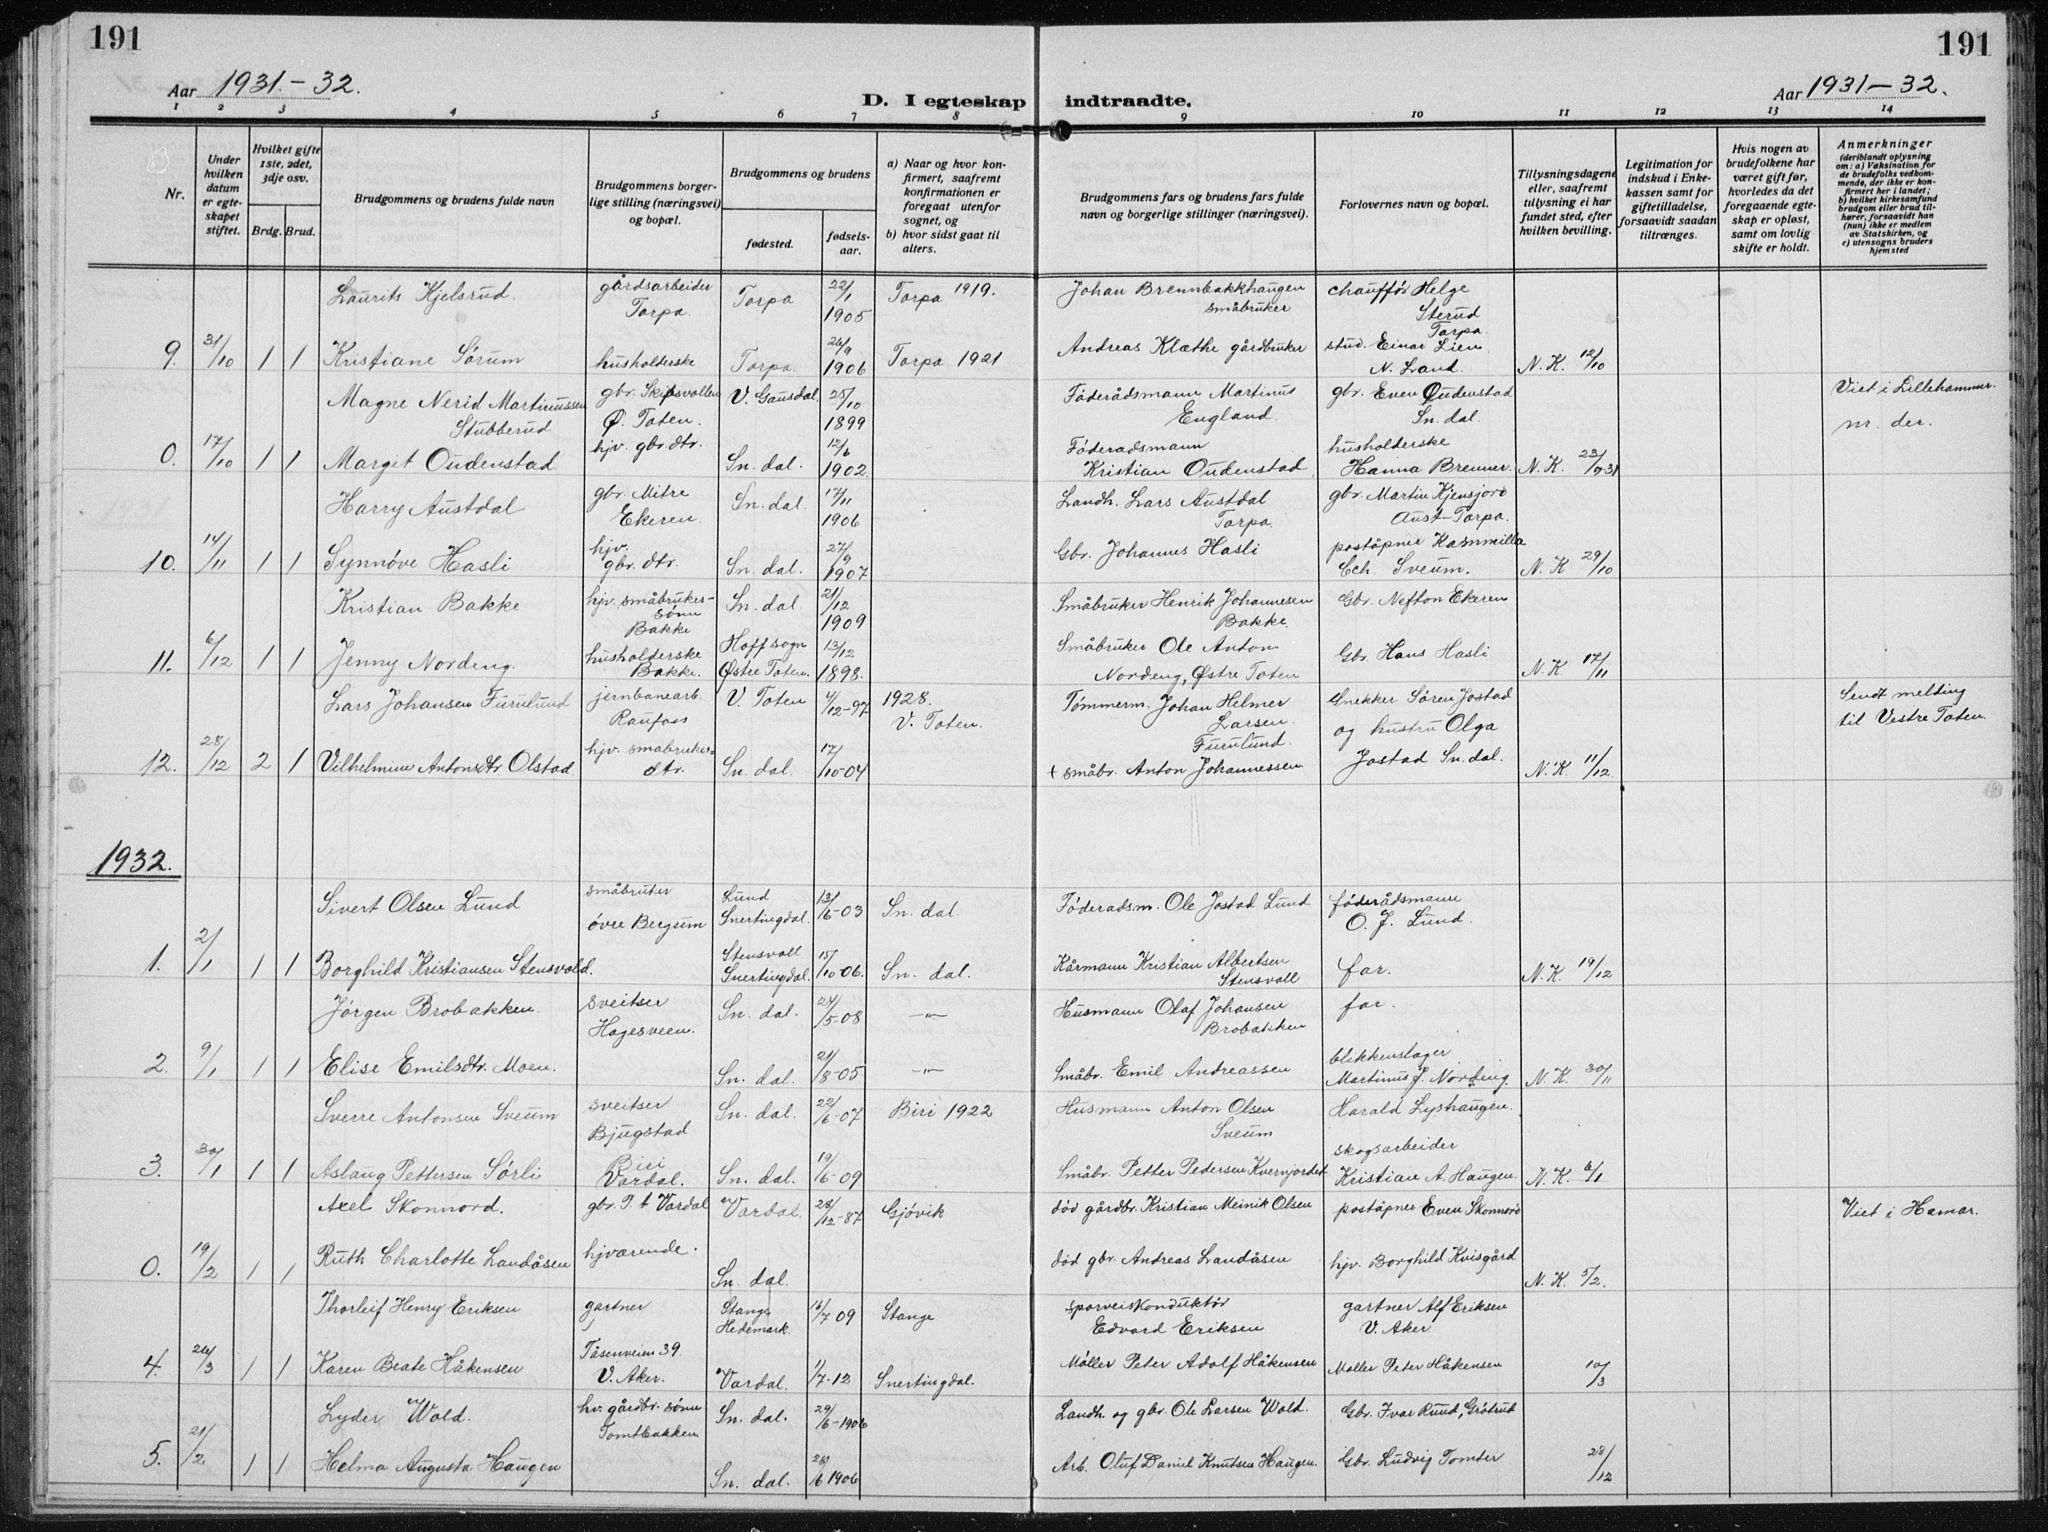 191
191
Aar 1931.-32.
D. I egteskap indtraadte.
Aar 1931-32.
1 2 3 4 5 6 7 8 9 10 11 12 13 14
Nr.
Under hvilken datum er egteskapet stiftet.
Hvilket gifte 1ste, 2det, 3dje osv.
Brdg. Brud.
Brudgommens og brudens fulde navn
Brudgommens borgerlige stilling (næringsvei) og bopæl.
Brudgommens og brudens
fødested.
fødselsaar.
a) Naar og hvor konfirmert, saafremt konfirmationen er foregaat utenfor sognet, og
b) hvor sidst gaat til alters.
Brudgommens fars og brudens fars fulde navn og borgerlige stillinger (næringsvei).
Forlovernes navn og bopæl.
Tillysningsdagene eller, saafremt tillysning ei har fundet sted, efter hvilken bevilling.
Legitimation for indskud i Enkekassen samt for giftetilladelse, forsaavidt saadan tiltrænges.
Hvis nogen av brudefolkene har været gift før, hvorledes da det foregaaende egteskap er opløst, samt om lovlig skifte er holdt.
Anmerkninger
(deriblandt oplysning om: a) Vaksination for de brudefolks vedkommende, der ikke er konfirmert her i landet; b) hvilket kirkesamfund brudgom eller brud tilhører, forsaavidt han (hun) ikke er medlem av Statskirken, og c) utensogns bruders hjemsted
Laurits Kjelsrud. gårdsarbeider Torpa. Torpa 22/1 1905 Torpa 1919. Johan Brennbakkhaugen småbruker chauffør Helge Sterud Torpa.
9. 31/10 1 1 Kristiane Sørum husholderske Torpa. 26/9 1906 Torpa 1921 Andreas Klæthe gårdbruker stud. Einar Lien N. Land. N. K. 12/10
Magne Nerid Martinussen Stubberud gbr. Skipsvollen Ø. Toten. V. Gausdal. 25/10 1899 Føderådsmann Martinus England. gbr. Even Oudenstad Sn. dal. Viet i Lillehammer. nr. der.
0. 17/10 1 1 Margit Oudenstad hjv. gbr. dtr. Sn. dal. 12/6 1902 Føderadsmann Kristian Oudenstad husholderske Hanna Brenner. N. K. 23/9 31
Harry Austdal gbr. Mitre Ekeren. Sn. dal. 17/11 1906 Landh. Lars Austdal Torpa. gbr. Martin Kjensjord Aust-Torpa.
10. 14/11 1 1 Synnøve Hasli hjv. gbr. dtr. Sn. dal. 27/9 1907 Gbr. Johannes Hasli poståpner Kammilla Ch. Sveum. N. K 29/10
Kristian Bakke hjv. småbrukersønn Bakke Sn. dal. 21/12 1909 Småbruker Henrik Johannesen Bakke. Gbr. Nefton Ekeren
11. 6/12 1 1 Jenny Nordeng. husholderske Bakke. Hoff sogn Østre Toten. 13/12 1898. Småbruker Ole Anton Nordeng, Østre Toten Gbr. Hans Hasli N. K. 17/11
Lars Johansen Furulund jernbanearb. Raufoss V. Toten 4/12-97 1928. V. Toten. Tømmerm. Johan Helmer Larsen. Furulund. Snekker Søren Jostad og hustru Olga Jostad Sn. dal. Sendt melding til Vestre Toten.
12. 28/12 2 1 Vilhelmine Antonsdtr Olstad hjv. småbrukerdtr. Sn. dal. 17/10-04 + småbr. Anton Johannessen N. K 11/12
1932.
Sivert Olsen Lund småbruker øvre Bergum Lund Snertingdal. 13/6-03 Sn. dal. Føderadsm. Ole Jostad Lund føderådsmann O. J. Lund.
1. 2/1 1 1 Borghild Kristiansen Stensvold. Stensvoll Snertingdal. 15/10-06. Sn. dal. Kårmann Kristian Albertsen Stensvoll far. N. K. 19/12
Jørgen Brobakken. sveitser Hagesveen. Sn. dal. 24/5-08 —"— Husmann Olaf Johansen Brobakken far.
2. 9/1 1 1 Elise Emilsdtr. Moen. Sn. dal. 21/8-05 —"— Småbr. Emil Andreassen blikkenslager Martinus J. Nordeng. N. K. 30/11
Sverre Antonsen Sveum sveitser Bjugstad Biri Sn. dal. 22/6-07 Biri 1922 Husmann Anton Olsen Sveum Harald Lyshaugen.
3. 30/1 1 1 Aslaug Pettersen Sørli Vardal. Sn. dal. 19/6-09 Småbr. Petter Pedersen Kvernjordet skogsarbeider Kristian A. Haugen. N. K. 6/1
Axel Skonnord. gbr. Vardal Vardal. 28/12-87 Gjøvik død gårdbr. Kristian Meinik Olsen poståpner Even Skonnord Viet i Hamar.
0. 19/2 1 1 Ruth Charlotte Landåsen hjværende. Sn. dal. død gbr. Andreas Landåsen hjv. Borghild Kvisgård N. K. 5/2.
Thorleif Henry Eriksen gartner Stange Hedemark. 16/7 09 Stange sporveiskonduktør Edvard Eriksen gartner Alf Eriksen V. Aker.
4. 26/3 1 1 Karen Beate Håkensen Tåsenveien 39. V. Aker. Vardal. 1/7-12 Snertingdal. Møller Peter Adolf Håkensen Møller Peter Håkensen 10/3
Lyder Wold. hv. gårdbr. sønn Tomtbakken Sn. dal. 29/6-1906 Landh. og gbr. Ole Larsen Wold. Gbr. Ivar Ruud, Grøtrud
5. 21/2 1 1 Helma Augusta Haugen Sn. dal. 26/6 1906 Arb. Oluf Daniel Knutsen Haugen. Gbr. Ludvig Tomter 28/12